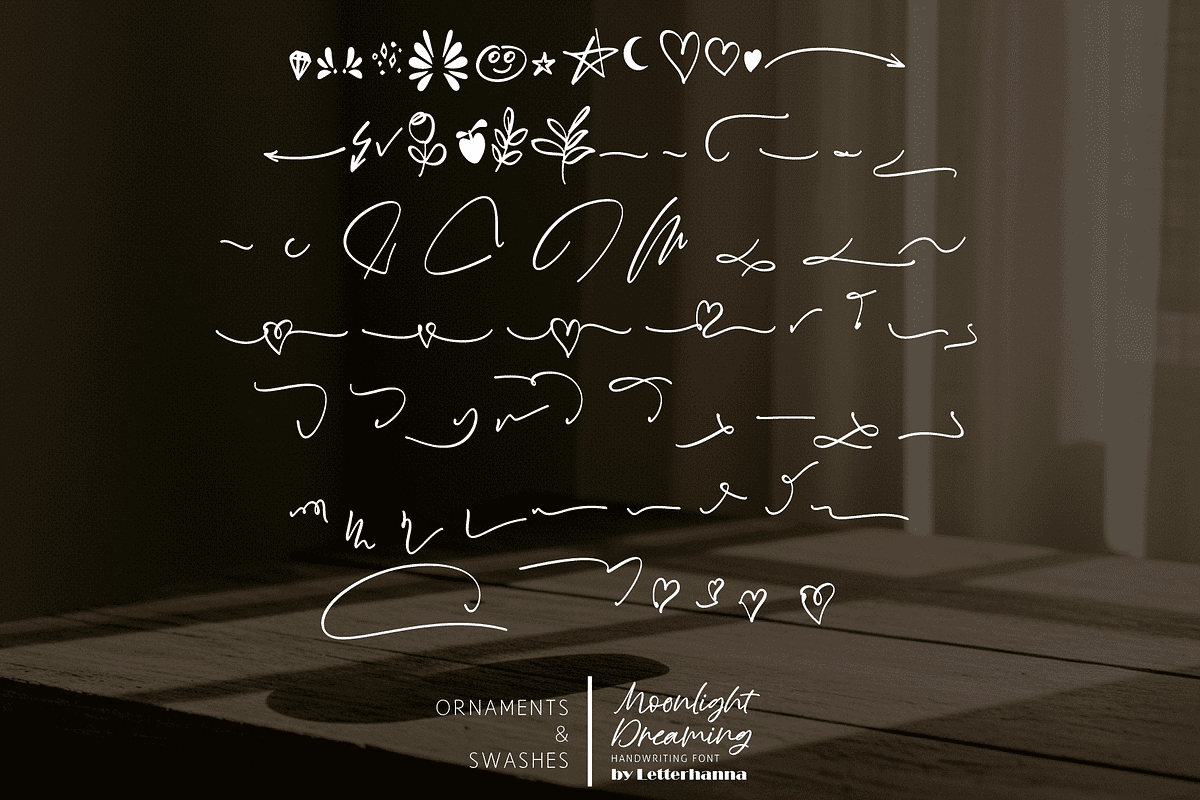 ORNAMENTS
&
SWASHES
Moonlight
Dreaming
HANDWRITING FONT
by Letterhanna